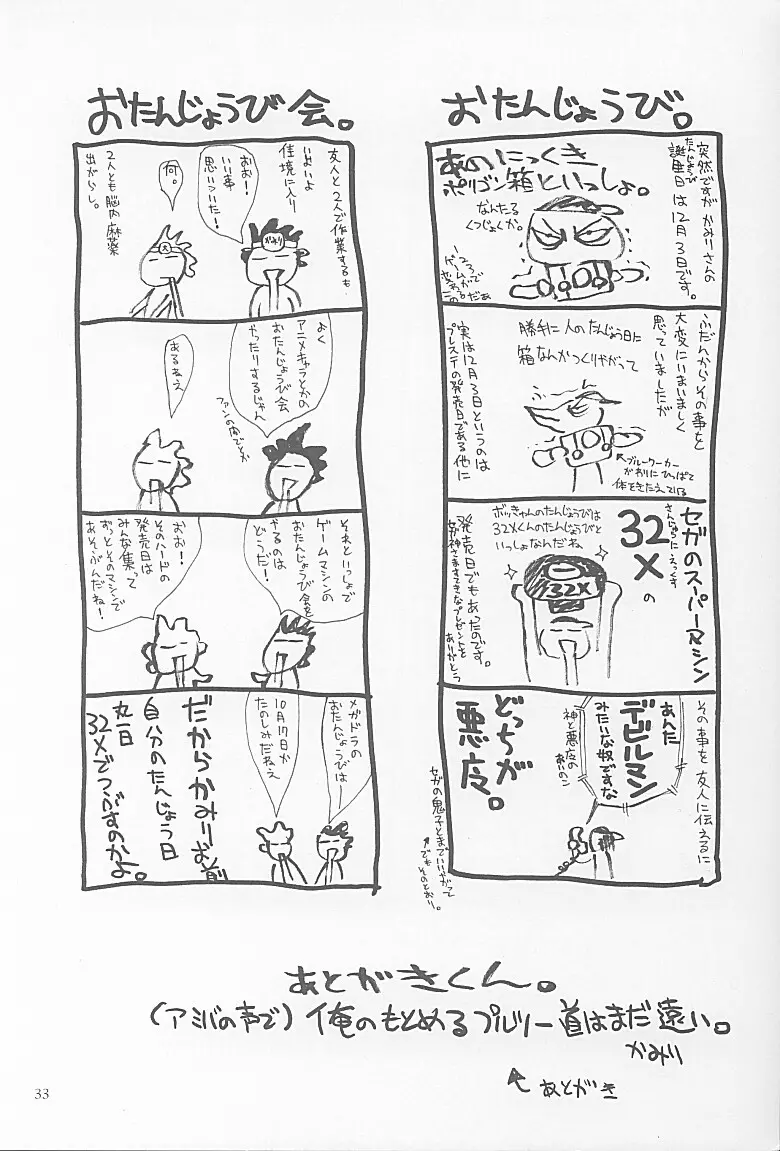 おたんじょうび。
突然ですが かみりさんの
誕生日は12月3日です。
たんじょうび
あのにっくき
ポリゴン箱といっしょ。
なんたる
くつじょくか。
ふだんからその事を
大変にいまいましく
思っていましたが
勝手に人のたんじょう日に
箱なんかつくりやがって
←ブルーワーカー
がわりにひっぱって
体をきたえている
実は12月3日というのは
プレステの発売日である他に
セガのスーパーマシン
さんじゅうにえっくす
32X
の
ボッキャんのたんじょうびは
32Xくんのたんじょうびと
いっしょなんだね
32X
発売日でもあったのです。
女神さますてきなプレゼントを
ありがとう
その事を友人に伝えるに
あんた
デビルマン
みたいな奴ですな
神と悪魔の
あいのこ
どっちが
悪魔。
セガの鬼子とまでいいやがって
↑でもそのとおり。
おたんじょうび会。
友人と2人で作業するも
いよいよ
佳境に入り
おお!
いい事
思いついた!
かみり
何。
2人とも脳内麻薬
出がらし。
よく
アニメキャラとかの
おたんじょうび会
やったりするじゃん
ファンの間でとか
あるねえ
それといっしょで
ゲームマシンの
おたんじょうび会を
やるのは
どうだ!
おお!
そのハードの
発売日は
みんな集って
ずっとそのマシンで
あそぶんだね!
メガドラの
おたんじょうびは
10月17日が
たのしみだねえ
だからかみりお前
自分のたんじょう日
丸一日
32Xでつぶすのかよ。
あとがきくん。
(アミバの声で)俺のもとめるプルツー道はまだ遠い。
かみり
↖あとがき
33